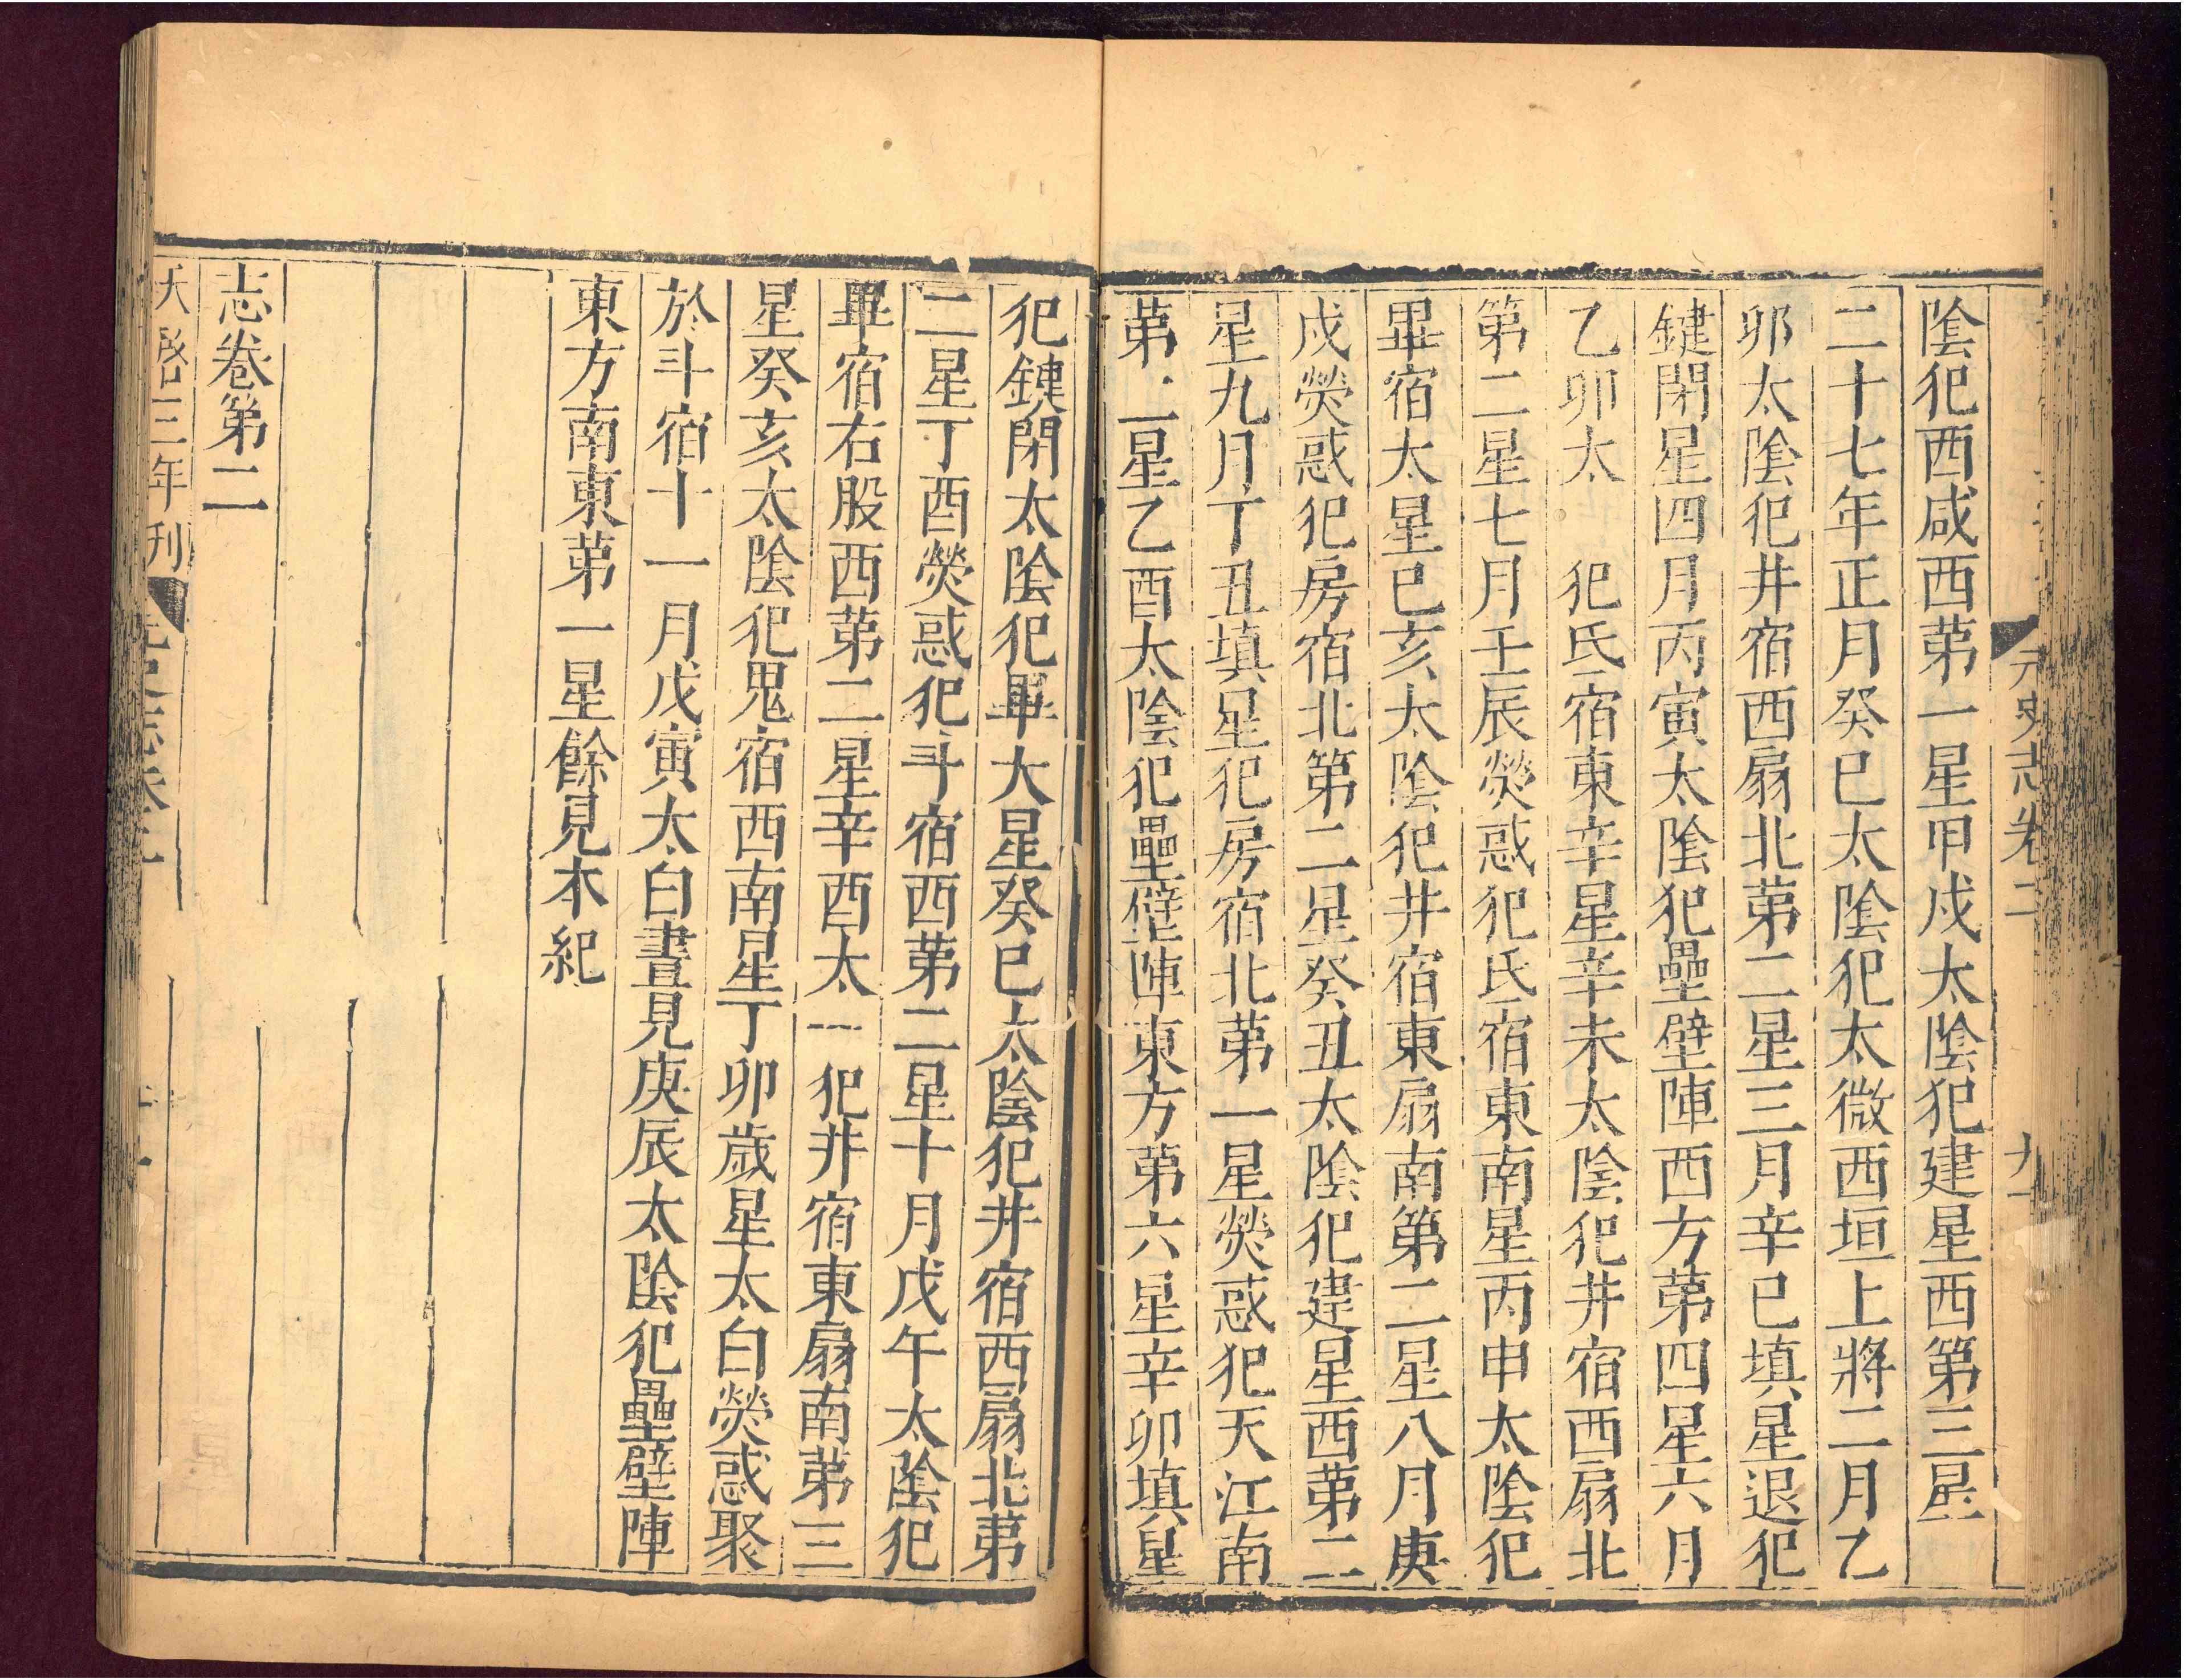 元史志卷二
陰犯西咸西第一星甲戌太陰犯建星西第三星
二十七年正月癸巳太陰犯太微西垣上將二月乙
卯太陰犯井宿西扇北第二星三月辛巳填星退犯
鍵閉星四月丙寅太陰犯壘壁陣西方第四星六月
乙卯太 犯氐宿東辛星辛未太陰犯井宿西扇北
第二星七月壬辰熒惑犯氐宿東南星丙申太陰犯
畢宿太星巳亥太陰犯井宿東扇南第二星八月庚
戌熒惑犯房宿北第二星癸丑太陰犯建星西第二
星九月丁丑填星犯房宿北第一星熒惑犯天江南
第二星乙酉太陰犯壘壁陣東方第六星辛卯填星
犯鍵閉太陰犯畢大星癸巳太陰犯井宿西扇北第
二星丁酉熒惑犯斗宿西第二星十月戊午太陰犯
畢宿右股西第二星辛酉太 犯井宿東扇南第三
星癸亥太陰犯鬼宿西南星丁卯歲星太白熒惑聚
於斗宿十一月戊寅太白晝見庚辰太陰犯壘壁陣
東方南東第一星餘見本紀
志卷第二
天啓三年刊